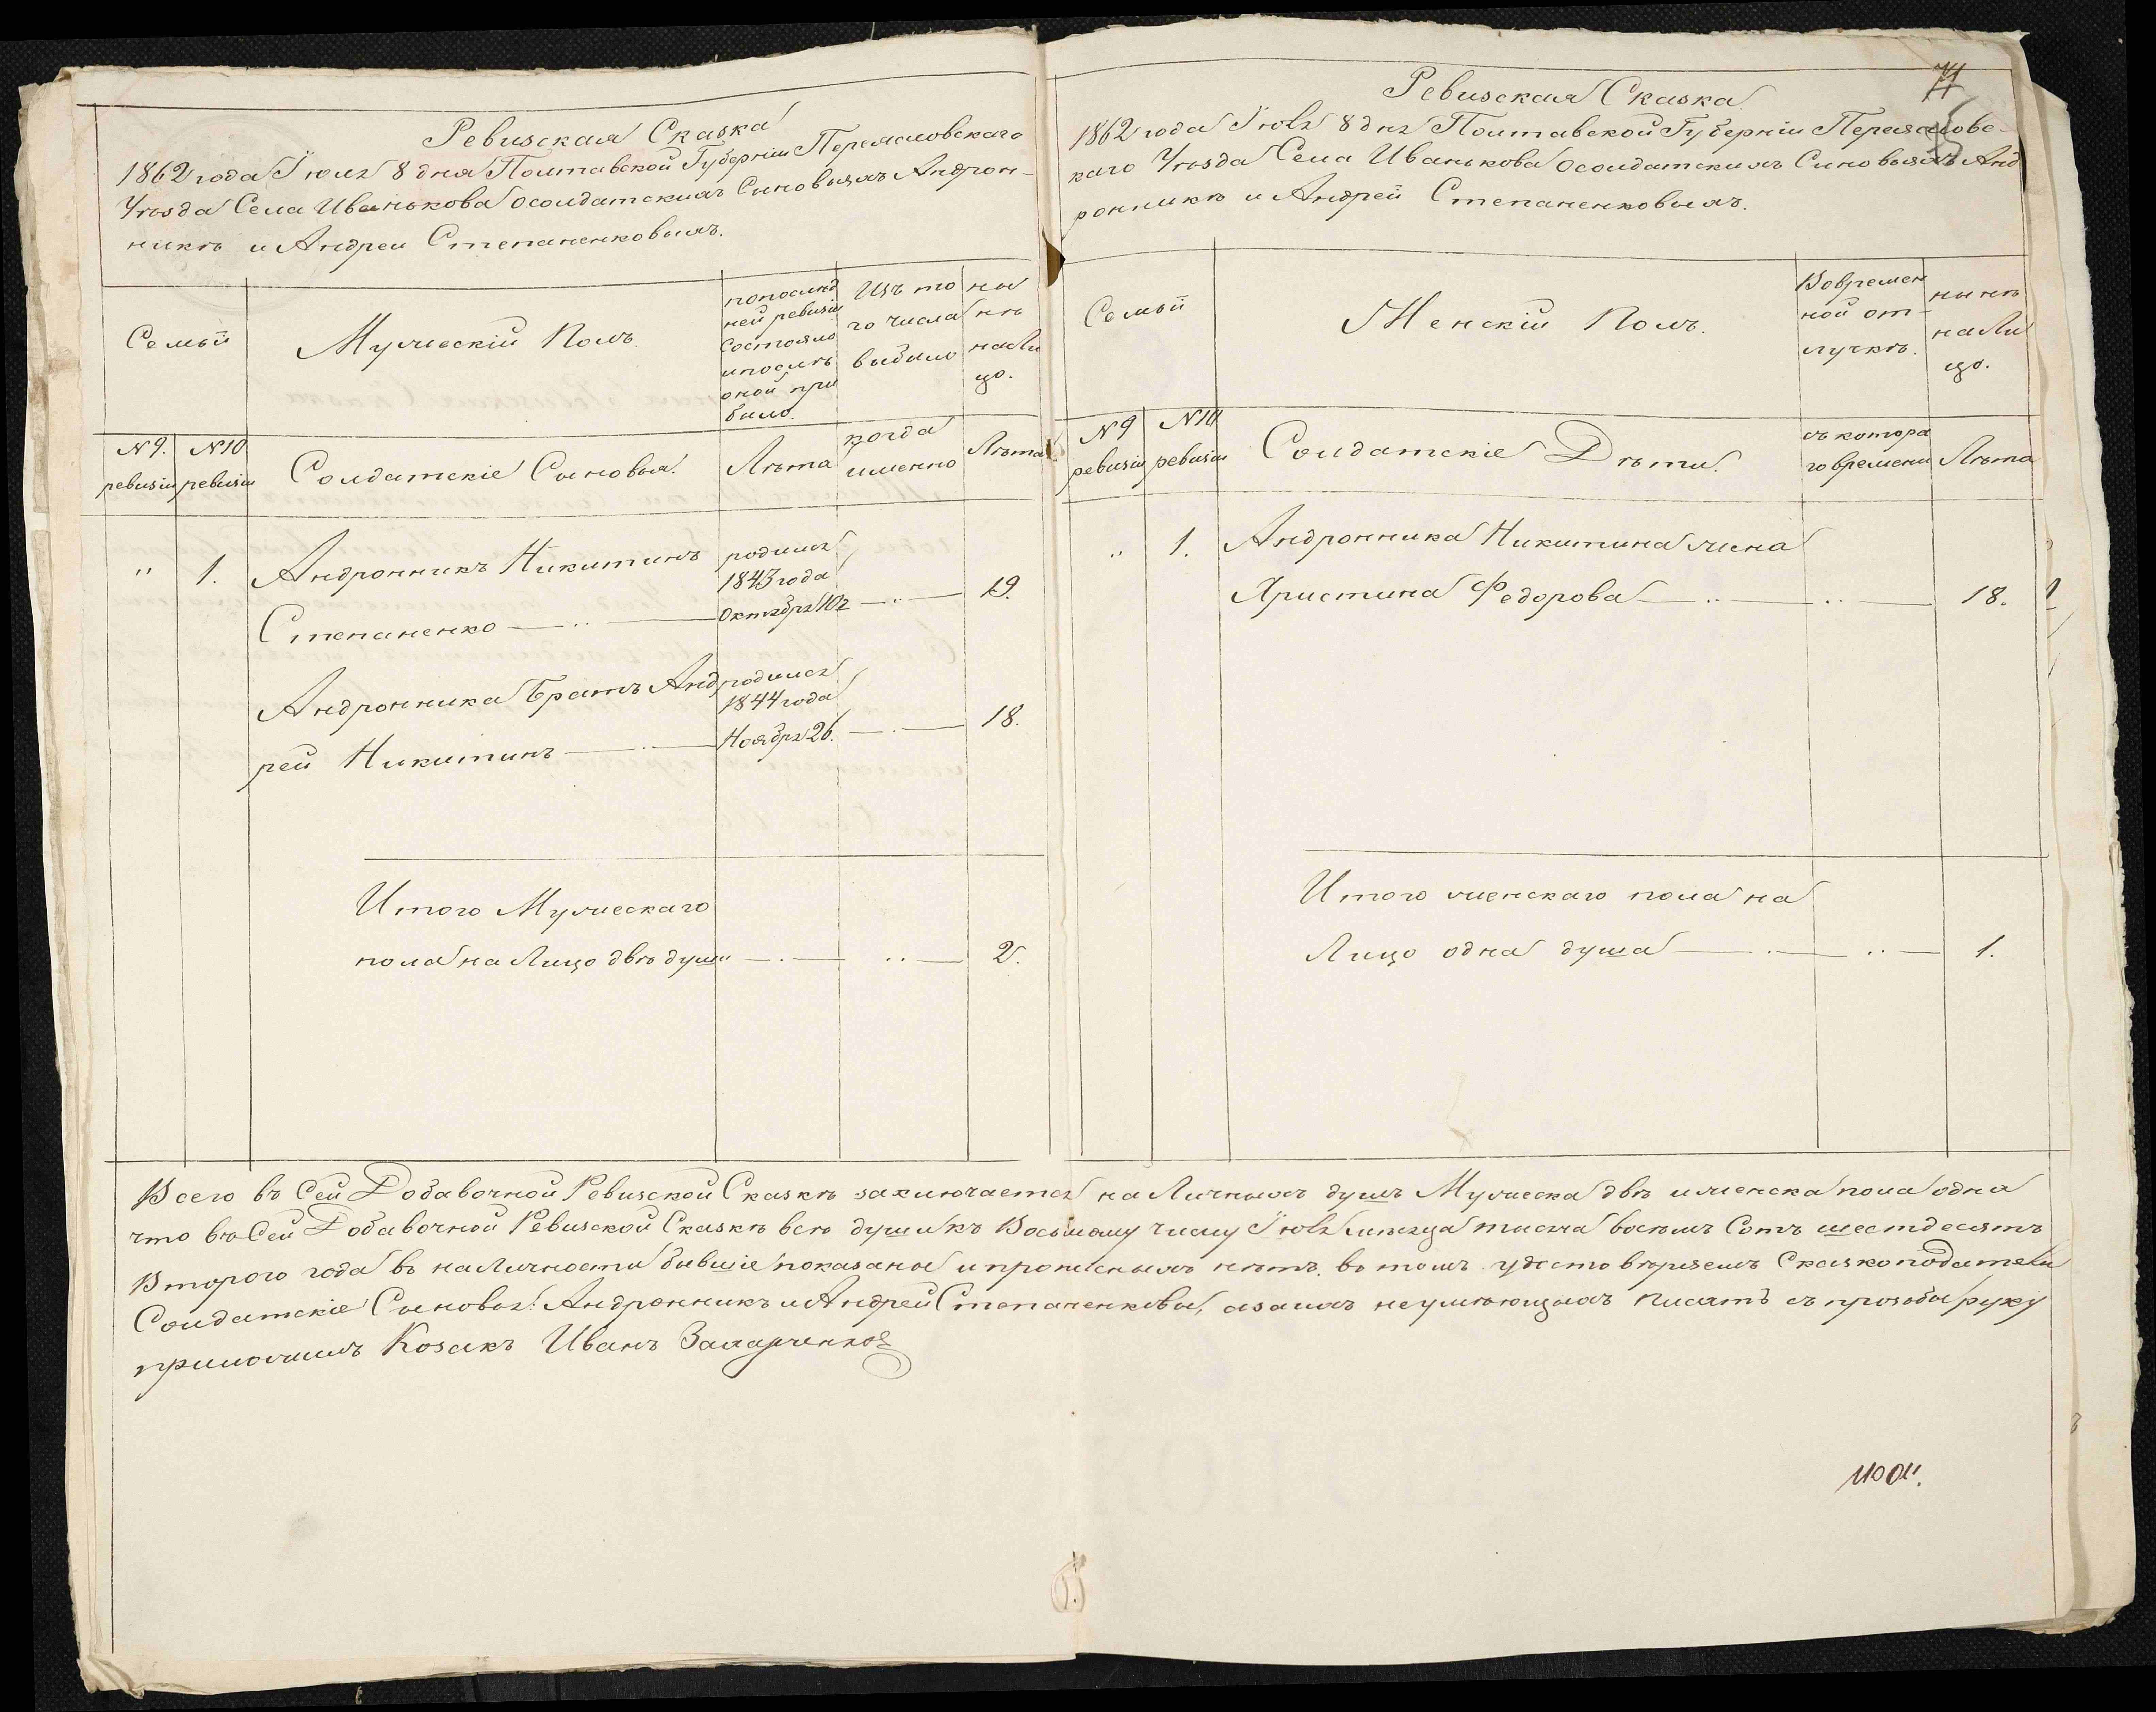 Ревизская Сказка
1862 года Іюля 8 дня Полтавской Губерніи Переясловскаго
Уѣзда Села Иванькова осолдатскихъ Синовьяхъ Андрон-
никѣ и Андреи Степаненковыхъ.
Семьи
Мужескій Полъ.
попослѣд
ней ревизіи
состояло
ипослѣ
оной при
было.
Изъ то
го числа
выбыло
ны
нѣ
наЛи
цо.
№ 9. ревизіи
№ 10 ревизіи
Солдатскіе Сыновья.
Лѣта
когда
именно
Лѣта
" 1. Андронникъ Никитинъ
Степаненко
родился
1843 года
Октября 10г
19.
Андронника братъ Анд
рей Никитинъ
родился
1844 года
Ноября 26.
18.
Итого Мужескаго
пола на Лицо двѣ души 2.
Ревизская Сказка
71
1862 года Іюля 8 дня Полтавской Губерніи Переясловс-
каго Уѣзда Села Иванькова осолдатскихъ Синовьяхъ Анд
ронникѣ и Андрей Степаненковыхъ.
Семьи
Женскій Полъ.
Вовремен
ной от-
лучкѣ.
нынѣ
наЛи
цо.
№ 9 ревизіи
№ 10 ревизіи
Солдатскіе Дѣти.
съ котора
го времени
Лѣта
" 1. Андронника Никитина жена
Христина Федорова 18.
Итого женскаго пола на
Лицо одна душа 1.
Всего въ Сей Добавочной Ревизской Сказкѣ заключается на Личныхъ душъ Мужеска двѣ иженска пола одна
что въ Сей Добавочной Ревизской Сказкѣ всѣ души къ Восьмому числу Іюля мѣсяца тысяча восѣмъ Сотъ шестдесятъ
Второго года въ наЛичности бывшіе показаны и прописныхъ нѣтъ. во томъ удостовѣряемъ Сказкоподатели
Солдатскіе Сыновья: Андронникъ и Андрей Степаненковы, азаихъ неумѣющихъ писать съ прозбы руку
приложилъ Козакъ Иванъ